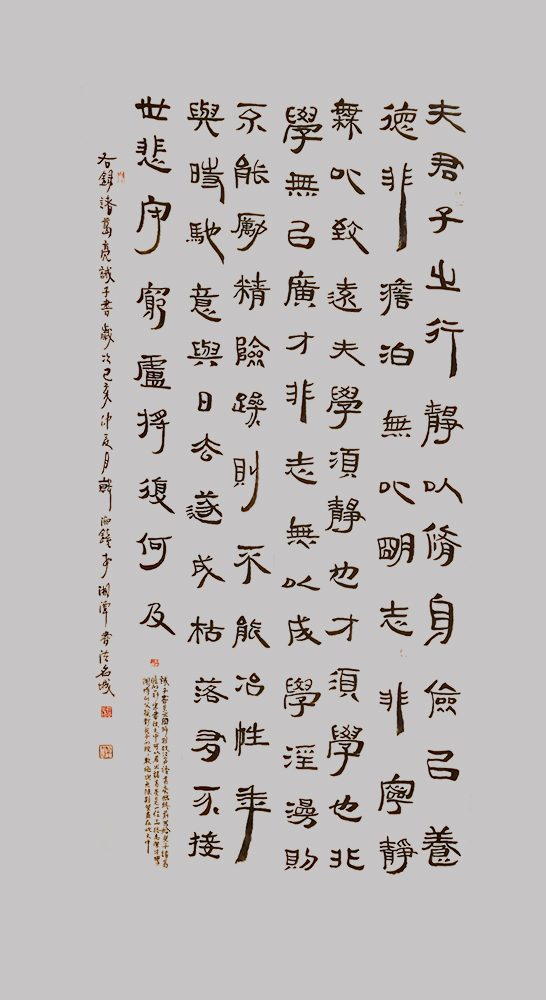 夫君子之行靜以脩身儉㠯養
德非澹泊無以明志非寧靜
無以致遠夫學須靜也才須學也非
學無㠯廣才非志無以成學淫漫則
不能勵精險躁則不能冶性年
與時馳意與日去遂成枯落多不接
世悲守窮廬將復何及
右錄諸葛亮誡子書歲次己亥仲夏月湘潭書法名城